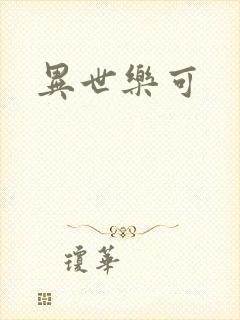 異世樂可
瓊華